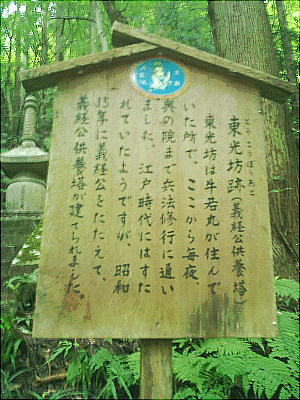 とうこうぼうあと
東光坊跡(義経公供養塔)
東光坊は牛若丸が住んで
いた所で、ここから毎夜、
奥の院まで兵法修行に通い
ました。江戸時代にはすた
れていたようですが、昭和
15年に義経公をたたえて、
義経公供養塔が建てられました。